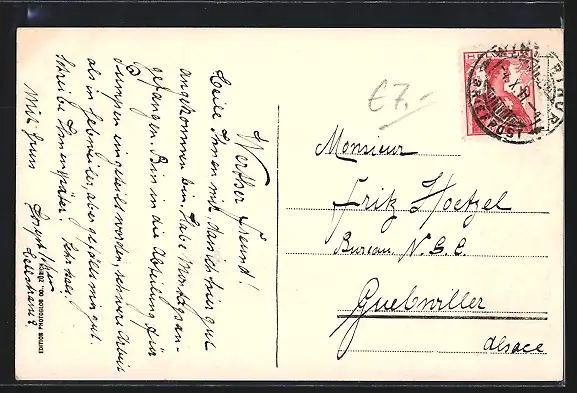 Werther Freund!
Teile Ihnen mit, dass ich hier gut
angekommen bin, habe Montag an-
gefangen. Bin in die Abteilung für
Pumpen eingeteilt worden, schwere Arbeit
als in Gebweiler, aber gefällt mir gut.
schreibe Ihnen später.
Mit Gruss
Joseph
EDITION PHOTOGLOB CO., ZÜRICH
€ 7.-
HELVETIA
WINTERTHUR
BRIEFPOST
Monsieur
Fritz Hoetzel
Bureau N.S.C.
Guebwiller
Alsace